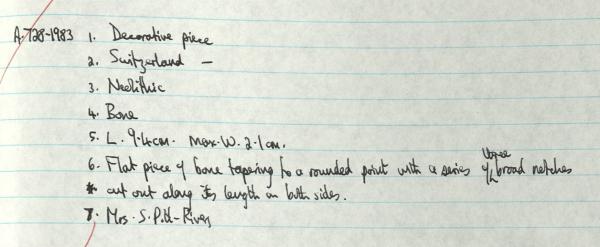 A.728-1983 1. Decorative piece
2. Switzerland –
3. Neolithic
4. Bone
5. L. 9.4cm. max. W. 2.1cm.
6. Flat piece of bone tapering to a rounded point with a series of broad notches
cut out along its length on both sides.
7. Mrs. S. Pitt-Rivers